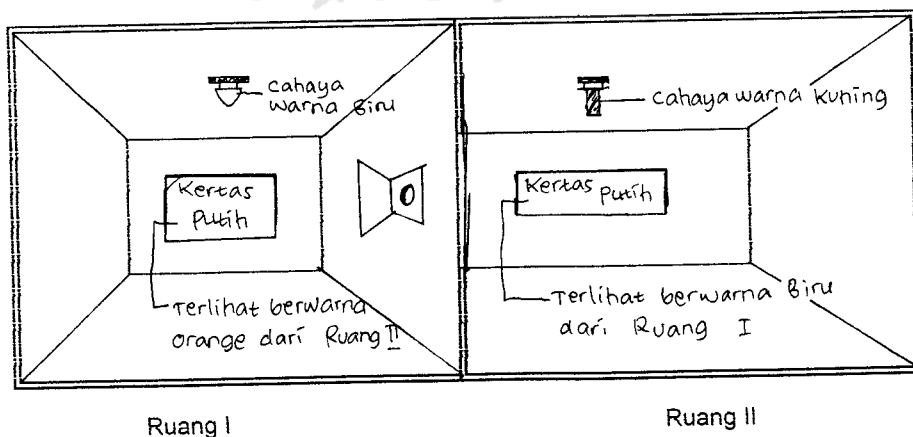 cahaya
warna Biru
Kertas
Putih
Terlihat berwarna
orange dari Ruang II
Ruang I
Cahaya warna Kuning
Kertas Putih
Terlihat berwarna Biru
dari Ruang I
Ruang II